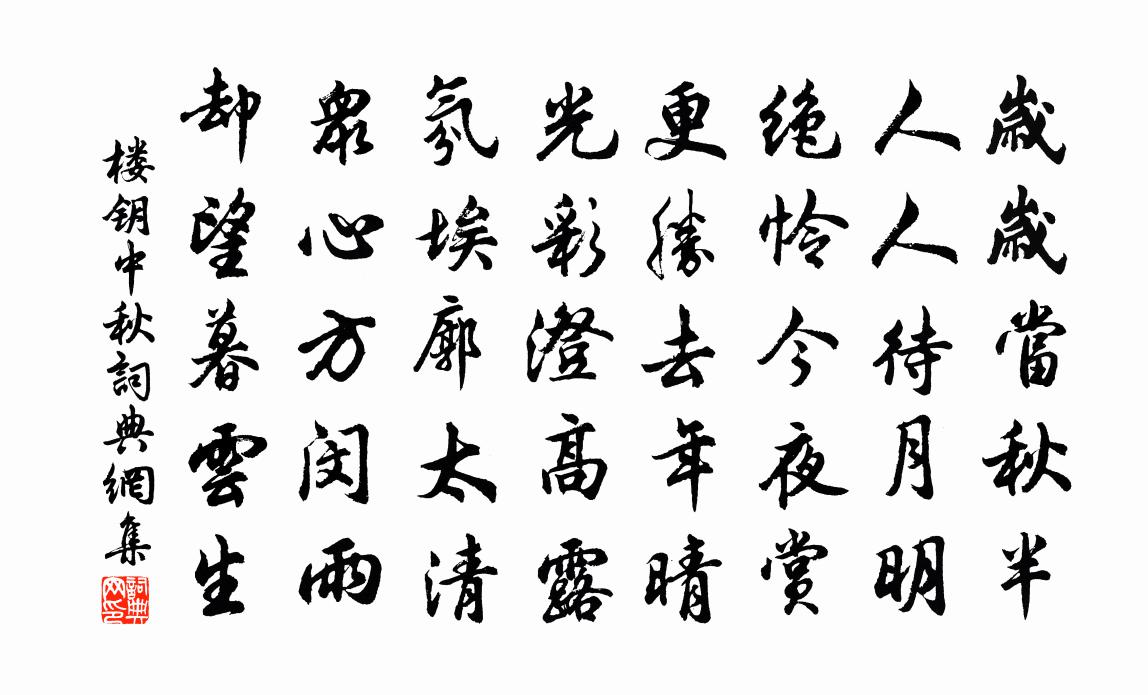 歲歲當秋半
人人待月明
絶怜今夜賞
更勝去年晴
光彩澄高露
氛埃廓太清
衆心方闵雨
却望暮雲生
楼钥中秋詞典網集
詞典網印